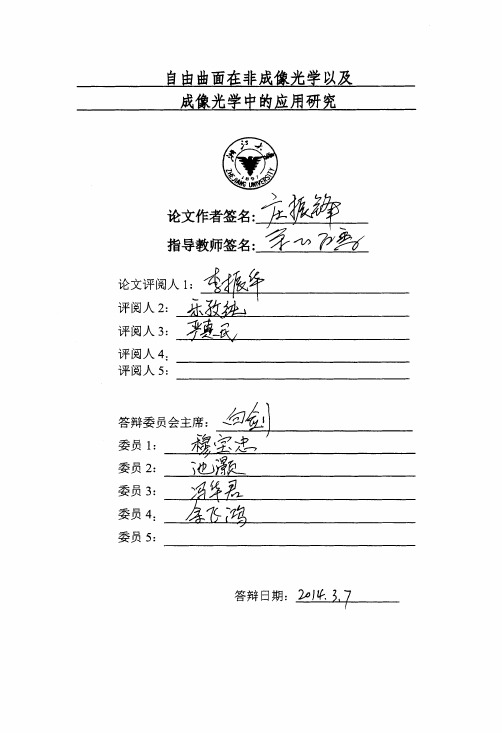 自由曲面在非成像光学以及
成像光学中的应用研究
浙江大学
ZHEJIANG UNIVERSITY
1897
论文作者签名: 庄振锋
指导教师签名:
论文评阅人 1: 李振华
评阅人 2: 乐孜纯
评阅人 3: 严惠民
评阅人 4:
评阅人 5:
答辩委员会主席: 向剑
委员 1: 穆宝忠
委员 2: 池灏
委员 3: 冯华君
委员 4: 余飞鸿
委员 5:
答辩日期: 2014.3.7